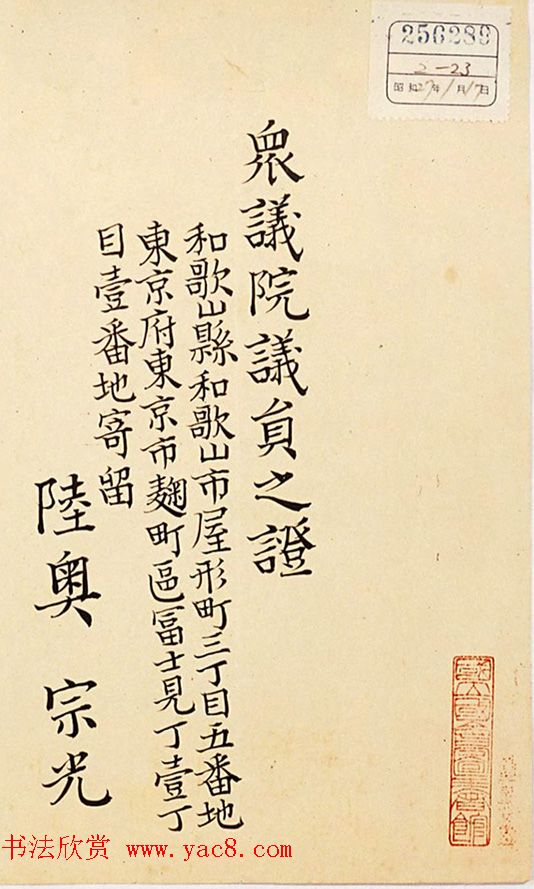 256289
2-23
昭和27年1月17日
衆議院議員之證
和歌山縣和歌山市屋形町三丁目五番地
東京府東京市麹町區冨士見丁壹丁
目壹番地寄留
陸奥宗光
书法欣赏 www.yac8.com